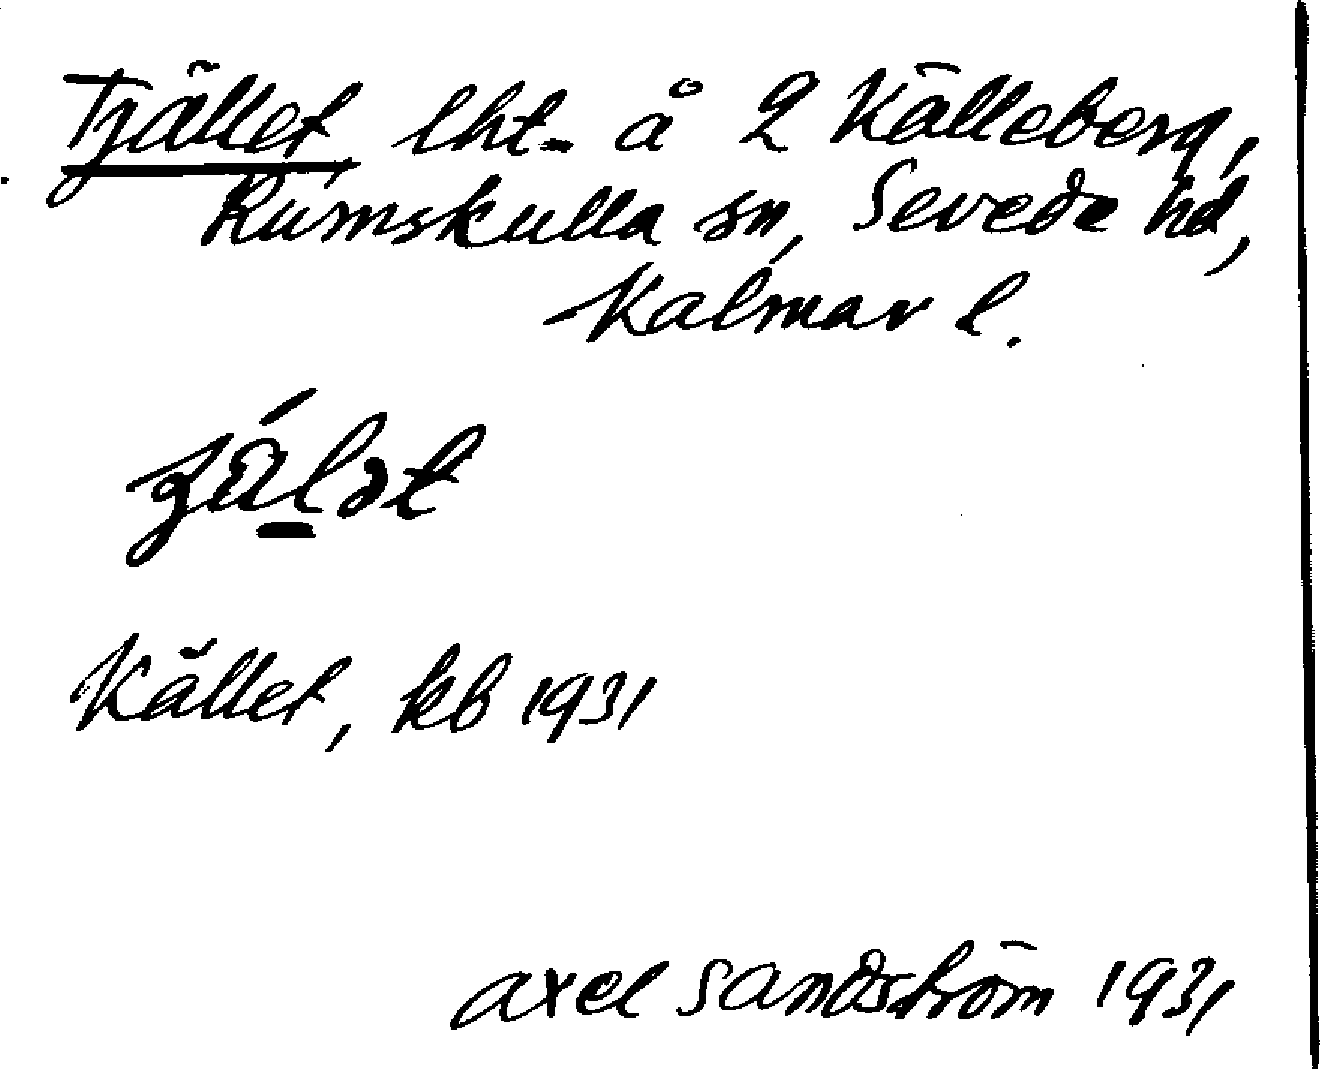 Tjället, lht. å 2 Källeberg,
Rumskulla sn, Sevede hd,
Kalmar l.
Kället, kb 1931
Axel Sandström 1931